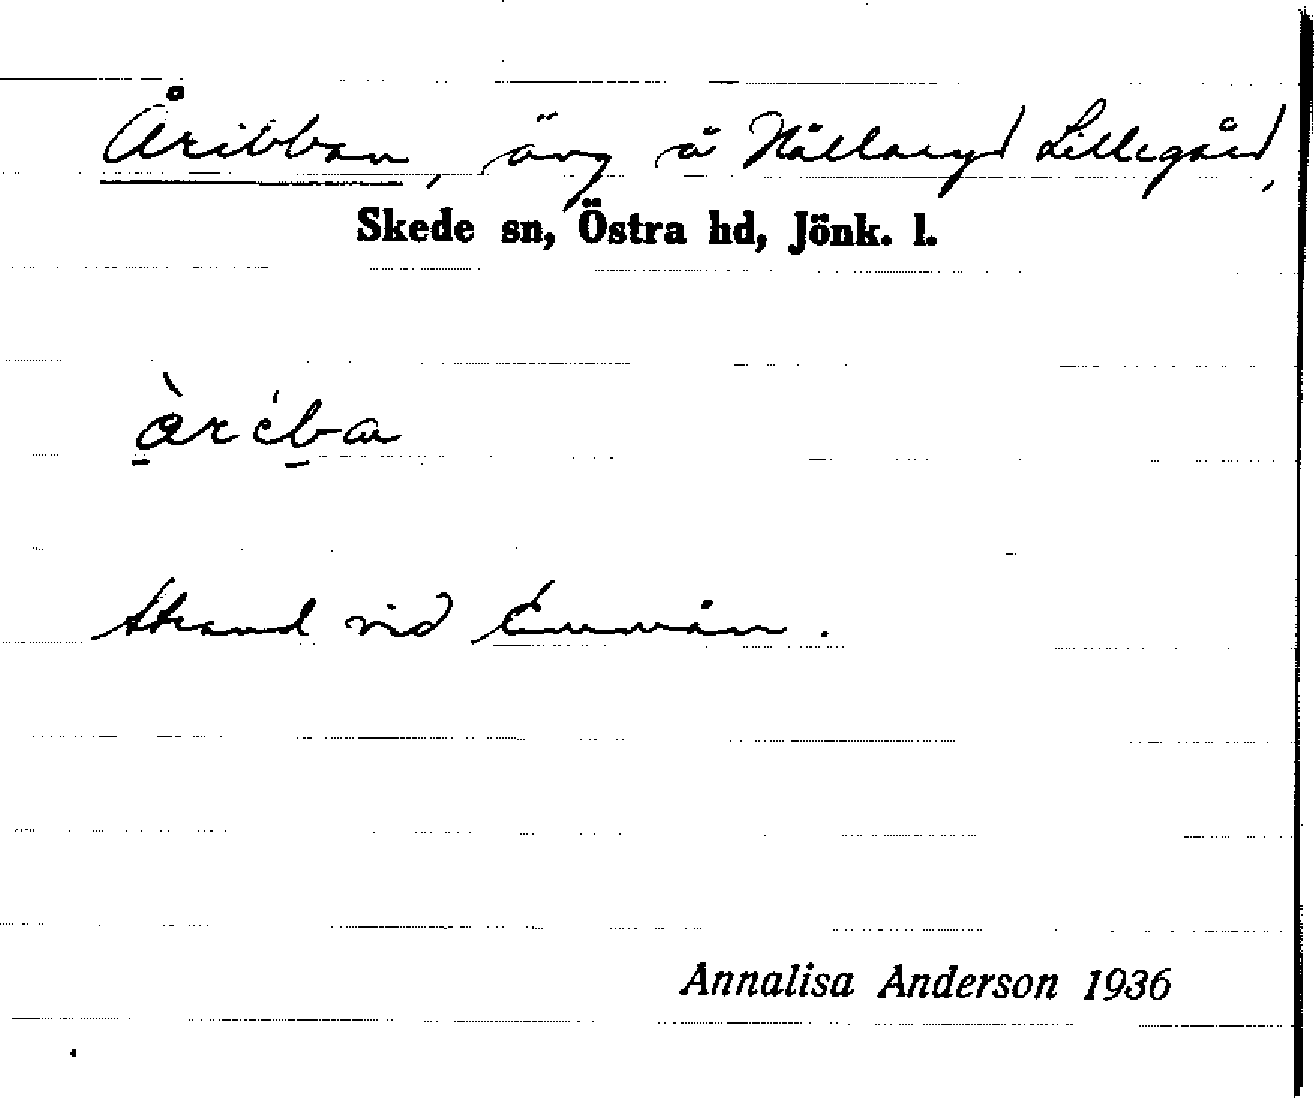 Åribban, äng å Nållaryd Lillegård,
Skede sn, Östra hd, Jönk. l.
Strand vid Emmån.
Annalisa Anderson 1936